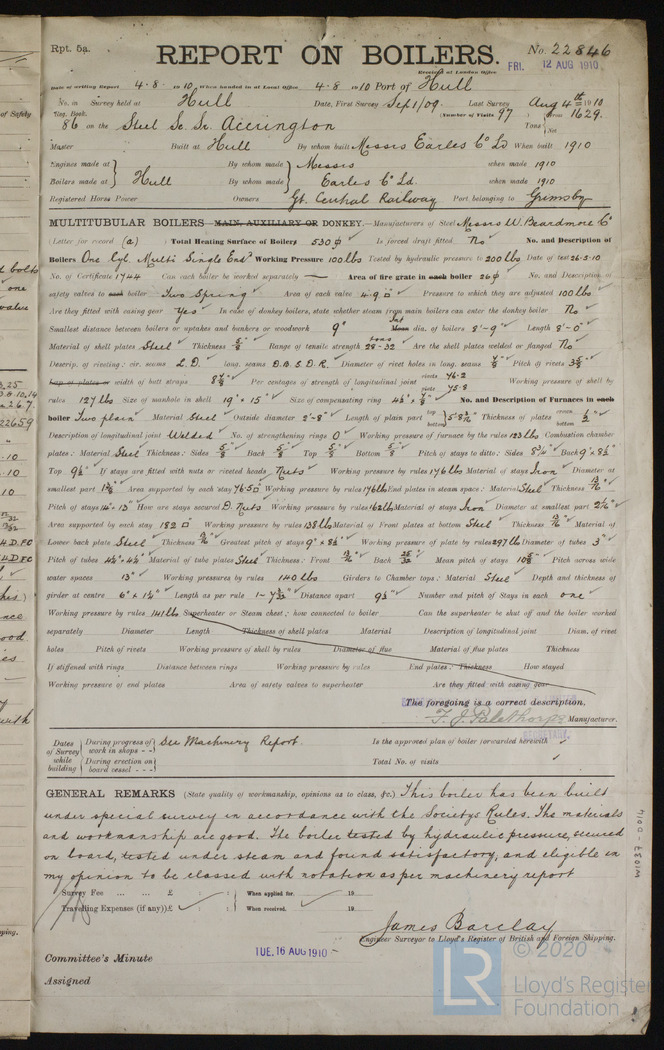 Rpt. 5a.
REPORT ON BOILERS.
No. 22846
Received at London Office
FRI. 12 AUG 1910
Date of writing Report 4.8.1910 When handed in at Local Office 4.8.1910 Port of Hull
No. in Survey held at Hull Date, First Survey Sep 1/09. Last Survey Aug 4th 1910
Reg. Book. (Number of Visits 97)
86 on the Steel Sc Sr. Accrington Tons Gross 1629. Net
Master Built at Hull By whom built Messrs Earles Co Ld When built 1910
Engines made at Hull By whom made Messrs Earles Co Ld. when made 1910
Boilers made at By whom made when made 1910
Registered Horse Power Owners Gt. Central Railway Port belonging to Grimsby
MULTITUBULAR BOILERS MAIN, AUXILIARY OR DONKEY.—Manufacturers of Steel Messrs W. Beardmore Co
(Letter for record (a) ) Total Heating Surface of Boilers 530 Is forced draft fitted No. No. and Description of
Boilers One Cyl. Multi Single End Working Pressure 100 lbs Tested by hydraulic pressure to 200 lbs Date of test 26.3.10
No. of Certificate 1744 Can each boiler be worked separately — Area of fire grate in each boiler 26 No. and Description of
safety valves to each boiler Two Spring Area of each valve 4.9 Pressure to which they are adjusted 100 lbs
Are they fitted with easing gear Yes In case of donkey boilers, state whether steam from main boilers can enter the donkey boiler No
Smallest distance between boilers or uptakes and bunkers or woodwork 9" Mean Int dia. of boilers 8'-9" Length 8'-0"
Material of shell plates Steel Thickness 5/8 Range of tensile strength 28-32 tons Are the shell plates welded or flanged No
Descrip. of riveting: cir. seams L.D. long. seams D.B.S.D.R. Diameter of rivet holes in long. seams Pitch of rivets
Lap of plates or width of butt straps Per centages of strength of longitudinal joint rivets 76.2 plate 75.8 Working pressure of shell by
rules 127 lbs Size of manhole in shell 19" × 15" Size of compensating ring No. and Description of Furnaces in each
boiler Two plain Material Steel Outside diameter 2'-8" Length of plain part top bottom Thickness of plates crown bottom 1/2"
Description of longitudinal joint Welded No. of strengthening rings 0 Working pressure of furnace by the rules 123 lbs Combustion chamber
plates: Material Steel Thickness: Sides 5/8 Back 5/8 Top 5/8 Bottom 5/8 Pitch of stays to ditto: Sides Back
Top If stays are fitted with nuts or riveted heads Nuts Working pressure by rules 176 lbs Material of stays Iron Diameter at
smallest part Area supported by each stay 76.5 Working pressure by rules 176 lbs End plates in steam space: Material Steel Thickness
Pitch of stays 14" × 13" How are stays secured D. Nuts Working pressure by rules 162 lbs Material of stays Iron Diameter at smallest part
Area supported by each stay 182 Working pressure by rules 138 lbs Material of Front plates at bottom Steel Thickness Material of
Lower back plate Steel Thickness Greatest pitch of stays Working pressure of plate by rules 297 lbs Diameter of tubes 3"
Pitch of tubes Material of tube plates Steel Thickness: Front Back Mean pitch of stays Pitch across wide
water spaces 13" Working pressures by rules 140 lbs Girders to Chamber tops: Material Steel Depth and thickness of
girder at centre Length as per rule Distance apart Number and pitch of Stays in each one
Working pressure by rules 141 lbs Superheater or Steam chest; how connected to boiler Can the superheater be shut off and the boiler worked
separately Diameter Length Thickness of shell plates Material Description of longitudinal joint Diam. of rivet
holes Pitch of rivets Working pressure of shell by rules Diameter of flue Material of flue plates Thickness
If stiffened with rings Distance between rings Working pressure by rules End plates: Thickness How stayed
Working pressure of end plates Area of safety valves to superheater Are they fitted with easing gear
The foregoing is a correct description,
Manufacturer.
SECRETARY.
Dates of Survey while building During progress of work in shops - - See Machinery Report. Is the approved plan of boiler forwarded herewith
During erection on board vessel - - - Total No. of visits
GENERAL REMARKS (State quality of workmanship, opinions as to class, &c.) This boiler has been built
under special survey in accordance with the Societys Rules. The materials
and workmanship are good. The boiler tested by hydraulic pressure, secured
on board, tested under steam and found satisfactory, and eligible in
my opinion to be classed with notation as per machinery report
Survey Fee ... ... £ : : When applied for. 19
Travelling Expenses (if any) £ : : When received. 19
James Barclay
Engineer Surveyor to Lloyd's Register of British and Foreign Shipping.
Committee's Minute TUE. 16 AUG 1910
Assigned
© 2020
LR Lloyd's Register
Foundation